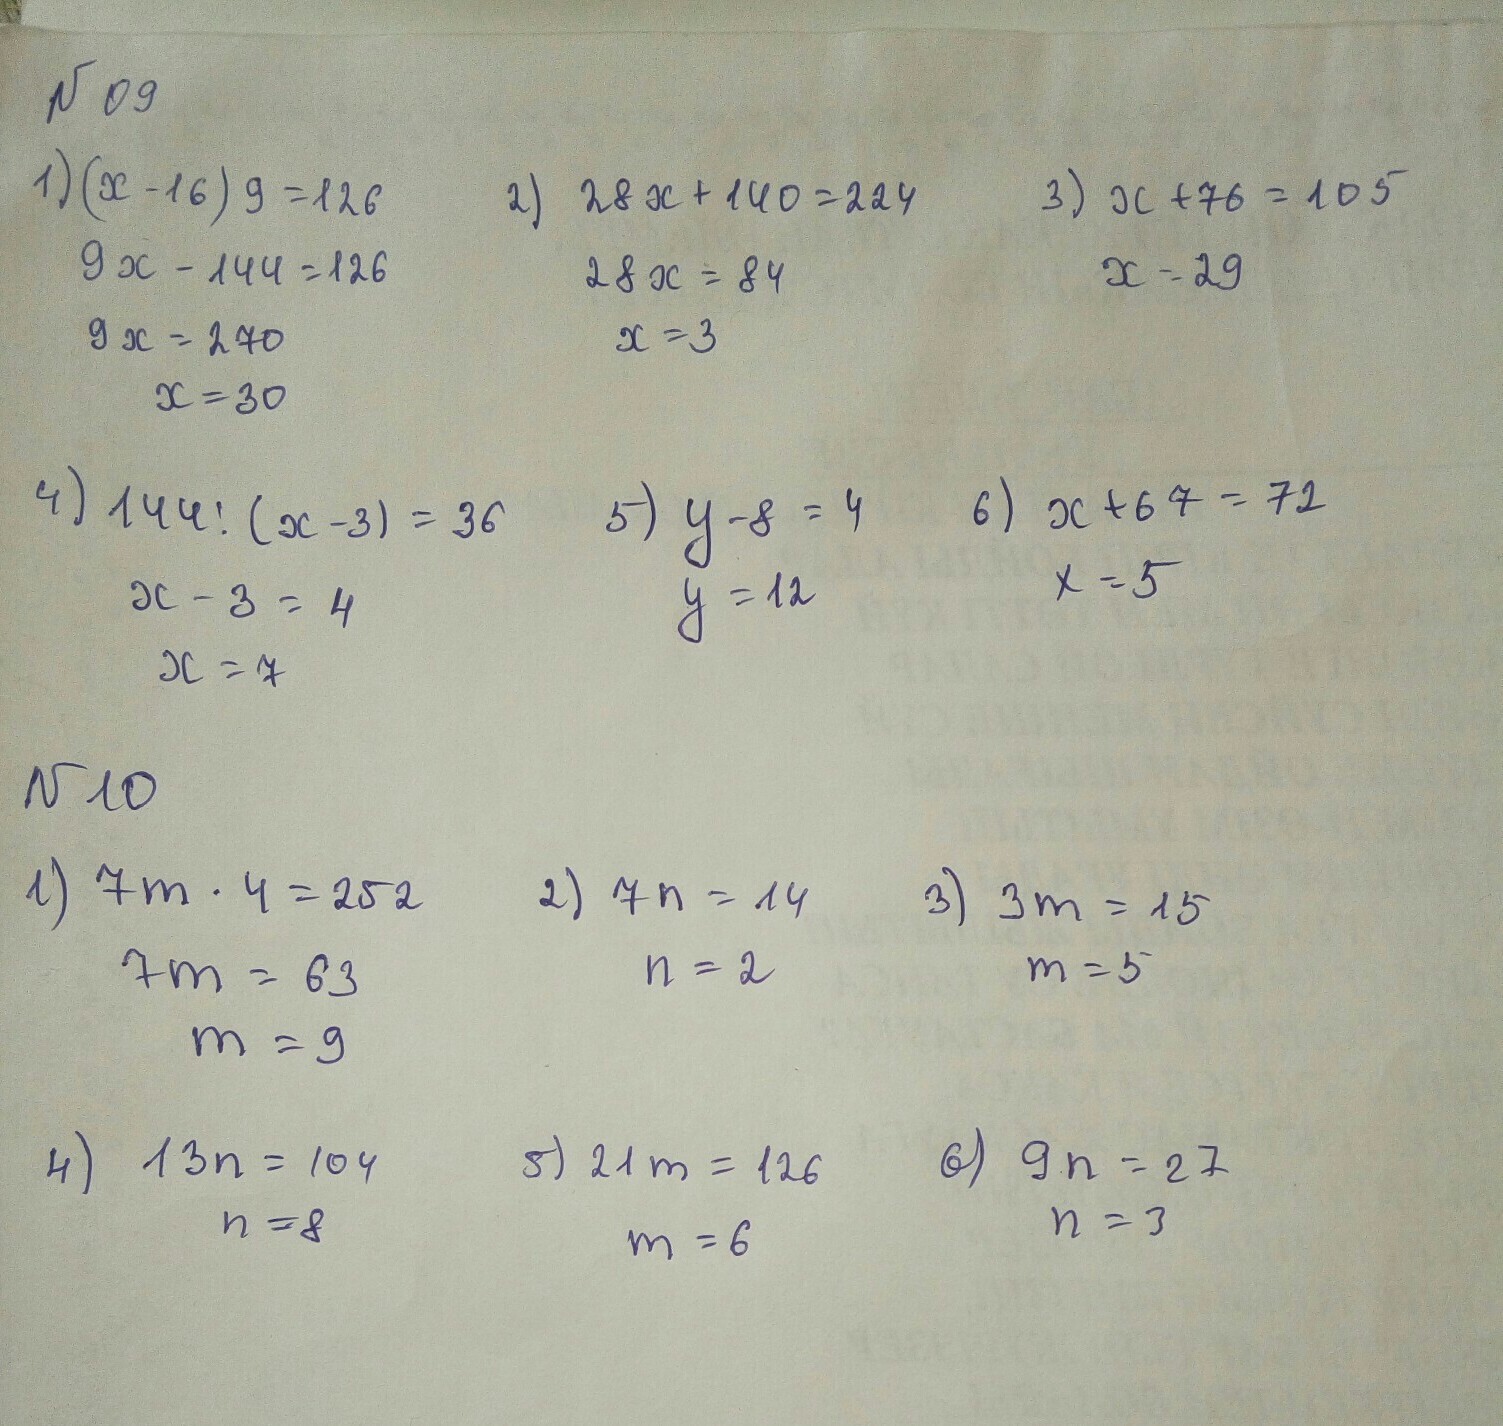 N 09
1) (x - 16) 9 = 126
9x - 144 = 126
9x = 270
x = 30
2) 28x + 140 = 224
28x = 84
x = 3
3) x + 76 = 105
x = 29
4) 144 : (x - 3) = 36
x - 3 = 4
x = 7
5) y - 8 = 4
y = 12
6) x + 67 = 72
x = 5
N 10
1) 7m · 4 = 252
7m = 63
m = 9
2) 7n = 14
n = 2
3) 3m = 15
m = 5
4) 13n = 104
n = 8
5) 21m = 126
m = 6
6) 9n = 27
n = 3